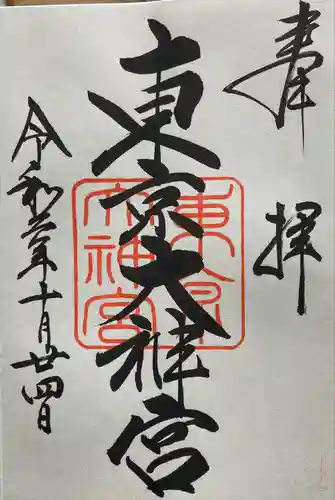 奉拝
東京大神宮
令和二年十月廿四日
東京
大神宮